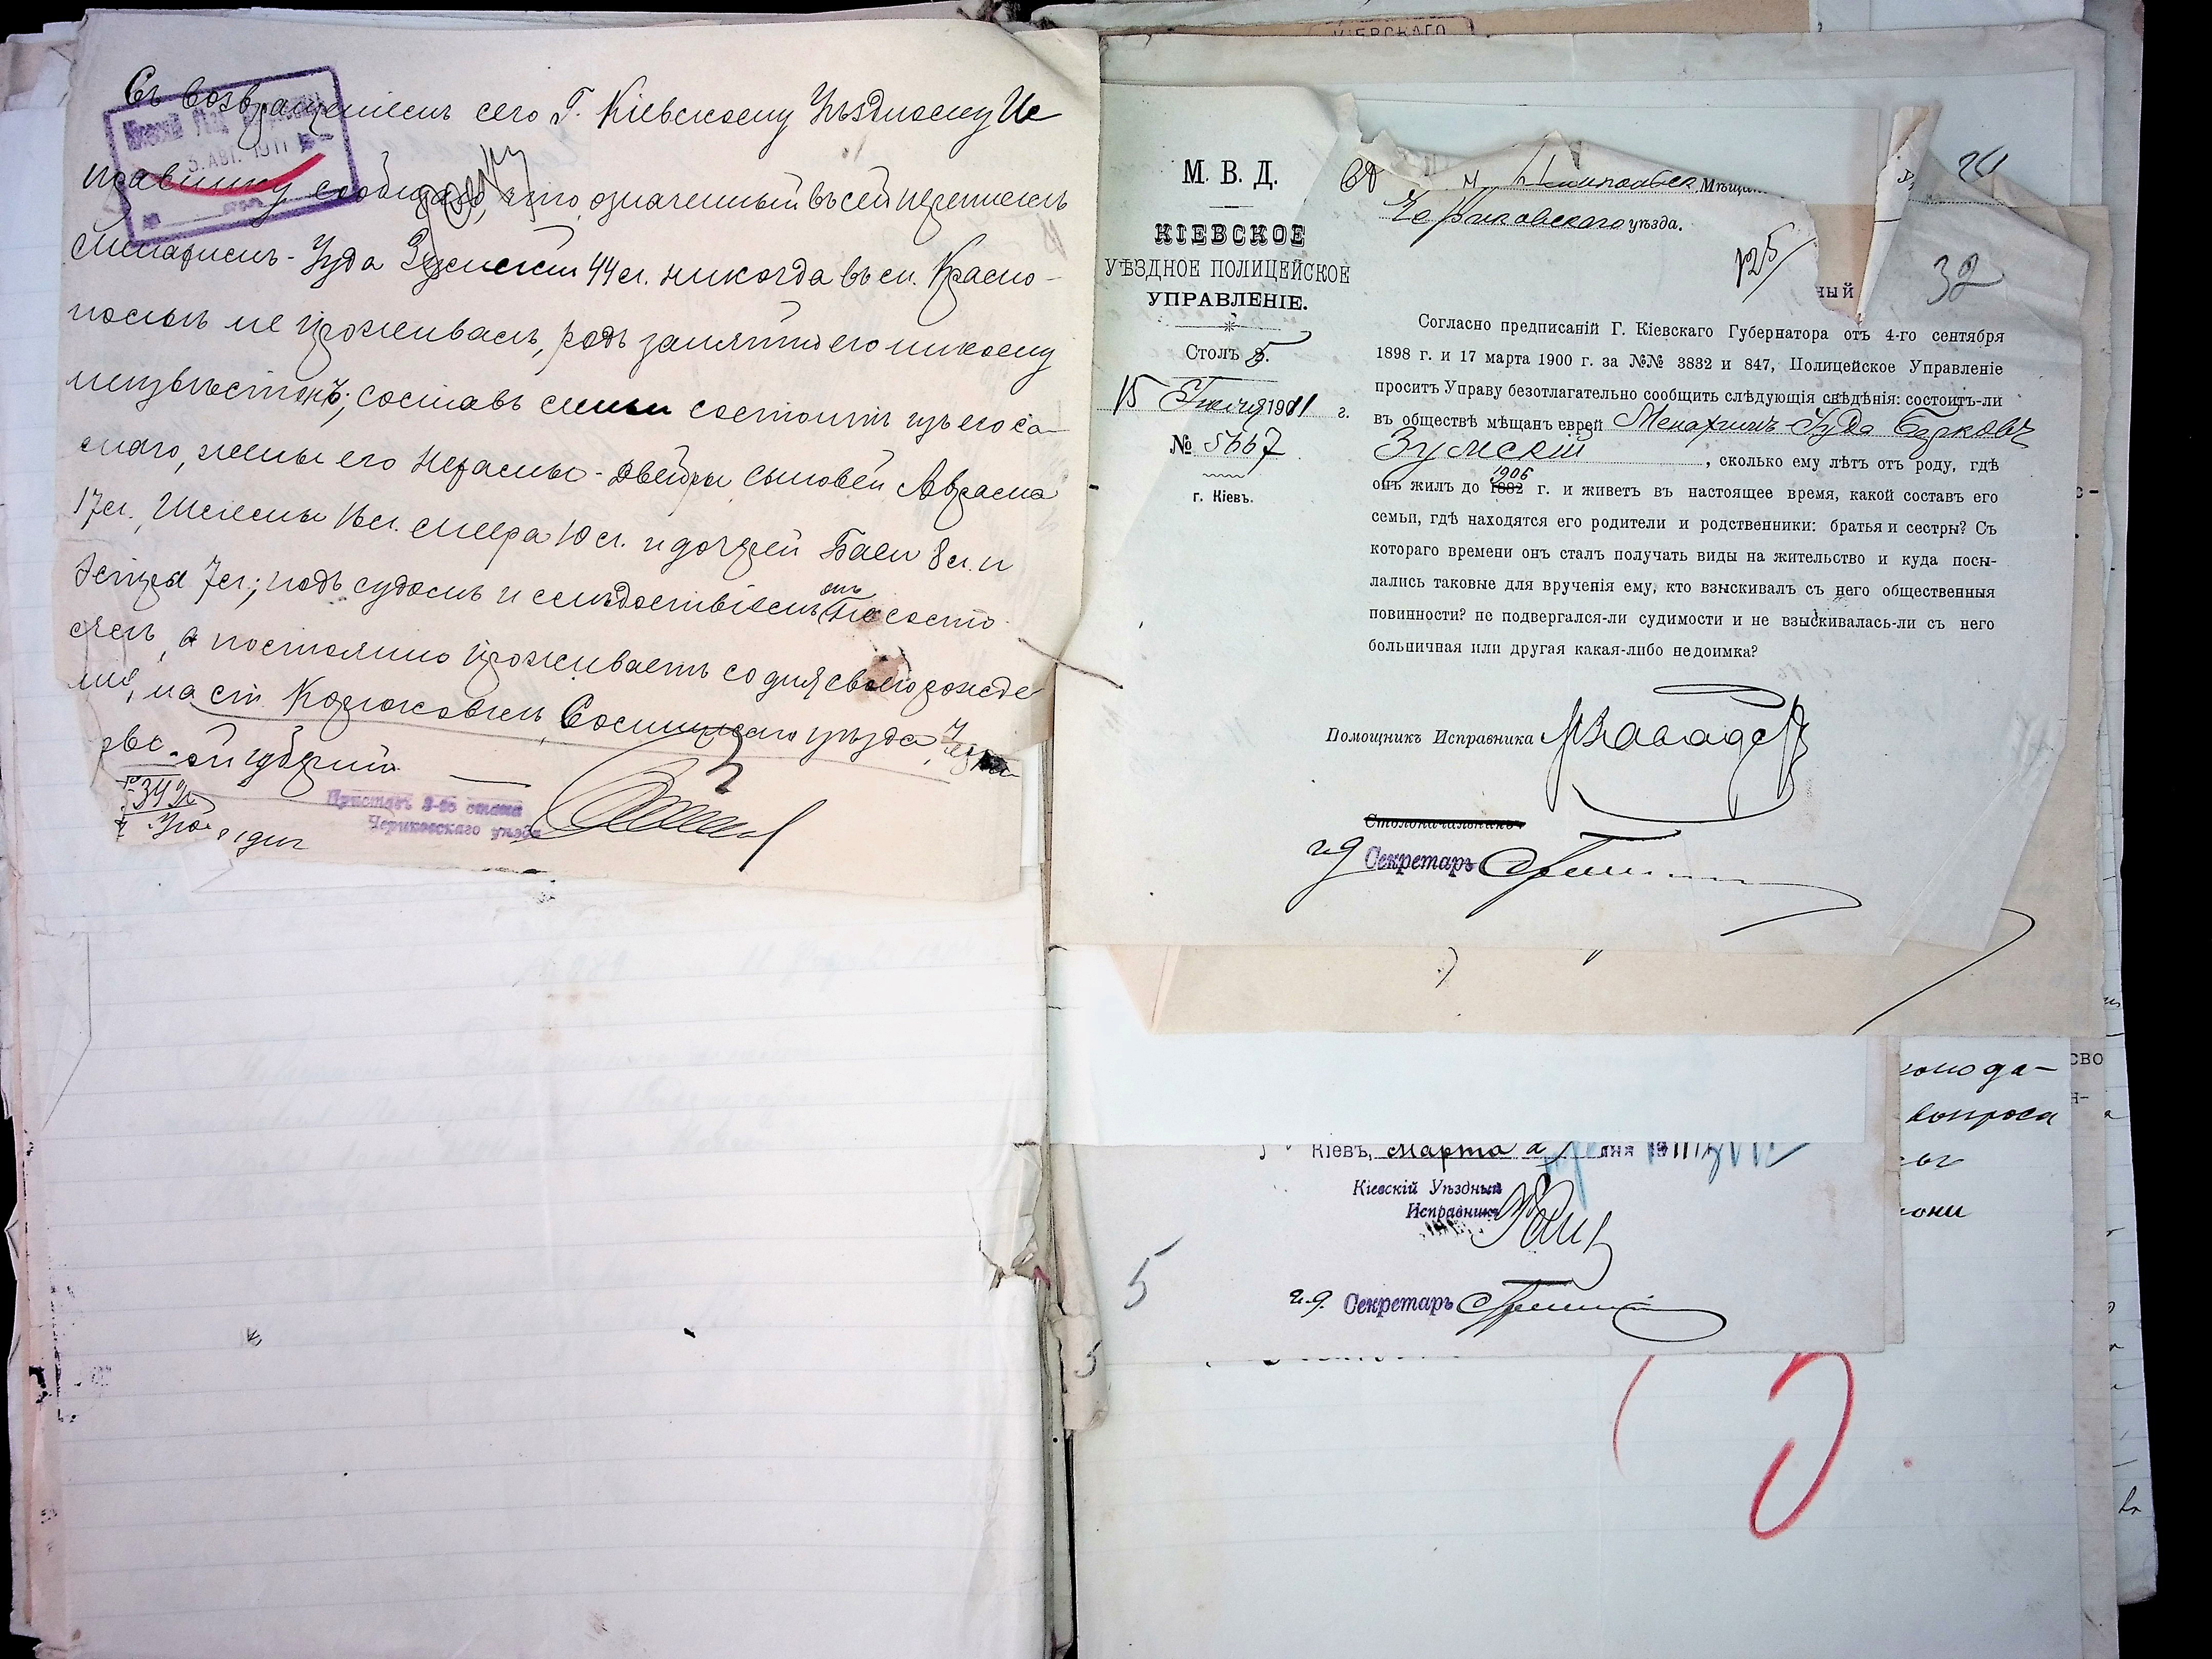 Съ возвращеніемъ сего Г. Кіевскому Уѣздному Ис
правнику сообщаю, что означенный въ сей перепискѣ
Менахимъ-Іуда Зумскій 44 л. никогда въ м. Красно-
польѣ не проживалъ, родъ занятій его никому
неизвѣстенъ; составъ семьи состоитъ изъ его са-
маго, жены его Нехамы-Двейры сыновей Абрама
17 л., Шлемы 16 л. Меера 10 л. и дочерей Баси 8 л. и
Эстры 7 л.; подъ судомъ и слѣдствіемъ онъ не состо
ялъ, а постоянно проживаетъ со дня своего рожде
нія, на ст. Корюковкѣ, Сосницкаго уѣзда, Черни
губерніи
Приставъ 2-го стана
Чериковскаго уѣзда
5. АВГ. 1911
КІЕВСКАГО
М. В. Д.
КІЕВСКОЕ
УѢЗДНОЕ ПОЛИЦЕЙСКОЕ
УПРАВЛЕНІЕ.
Столъ 5.
15 Іюля 1911 г.
№ 5667
г. Кіевъ.
Въ Мѣщан
Чериковскаго уѣзда.
125
32
ный
Согласно предписаній Г. Кіевскаго Губернатора отъ 4-го сентября
1898 г. и 17 марта 1900 г. за №№ 3832 и 847, Полицейское Управленіе
проситъ Управу безотлагательно сообщить слѣдующія свѣдѣнія: состоитъ-ли
въ обществѣ мѣщанъ еврей Менахимъ Іуда Берковъ
Зумскій , сколько ему лѣтъ отъ роду, гдѣ
1906
онъ жилъ до 1882 г. и живетъ въ настоящее время, какой составъ его
семьи, гдѣ находятся его родители и родственники: братья и сестры? Съ
котораго времени онъ сталъ получать виды на жительство и куда посы-
лались таковые для врученія ему, кто взыскивалъ съ него общественныя
повинности? не подвергался-ли судимости и не взыскивалась-ли съ него
больничная или другая какая-либо недоимка?
Помощникъ Исправника
Столоначальникъ
и д Секретарь
Кіевъ, Марта дня 1911 г.
Кіевскій Уѣздный
Исправникъ
и.д. Секретарь
5
5
вопроса